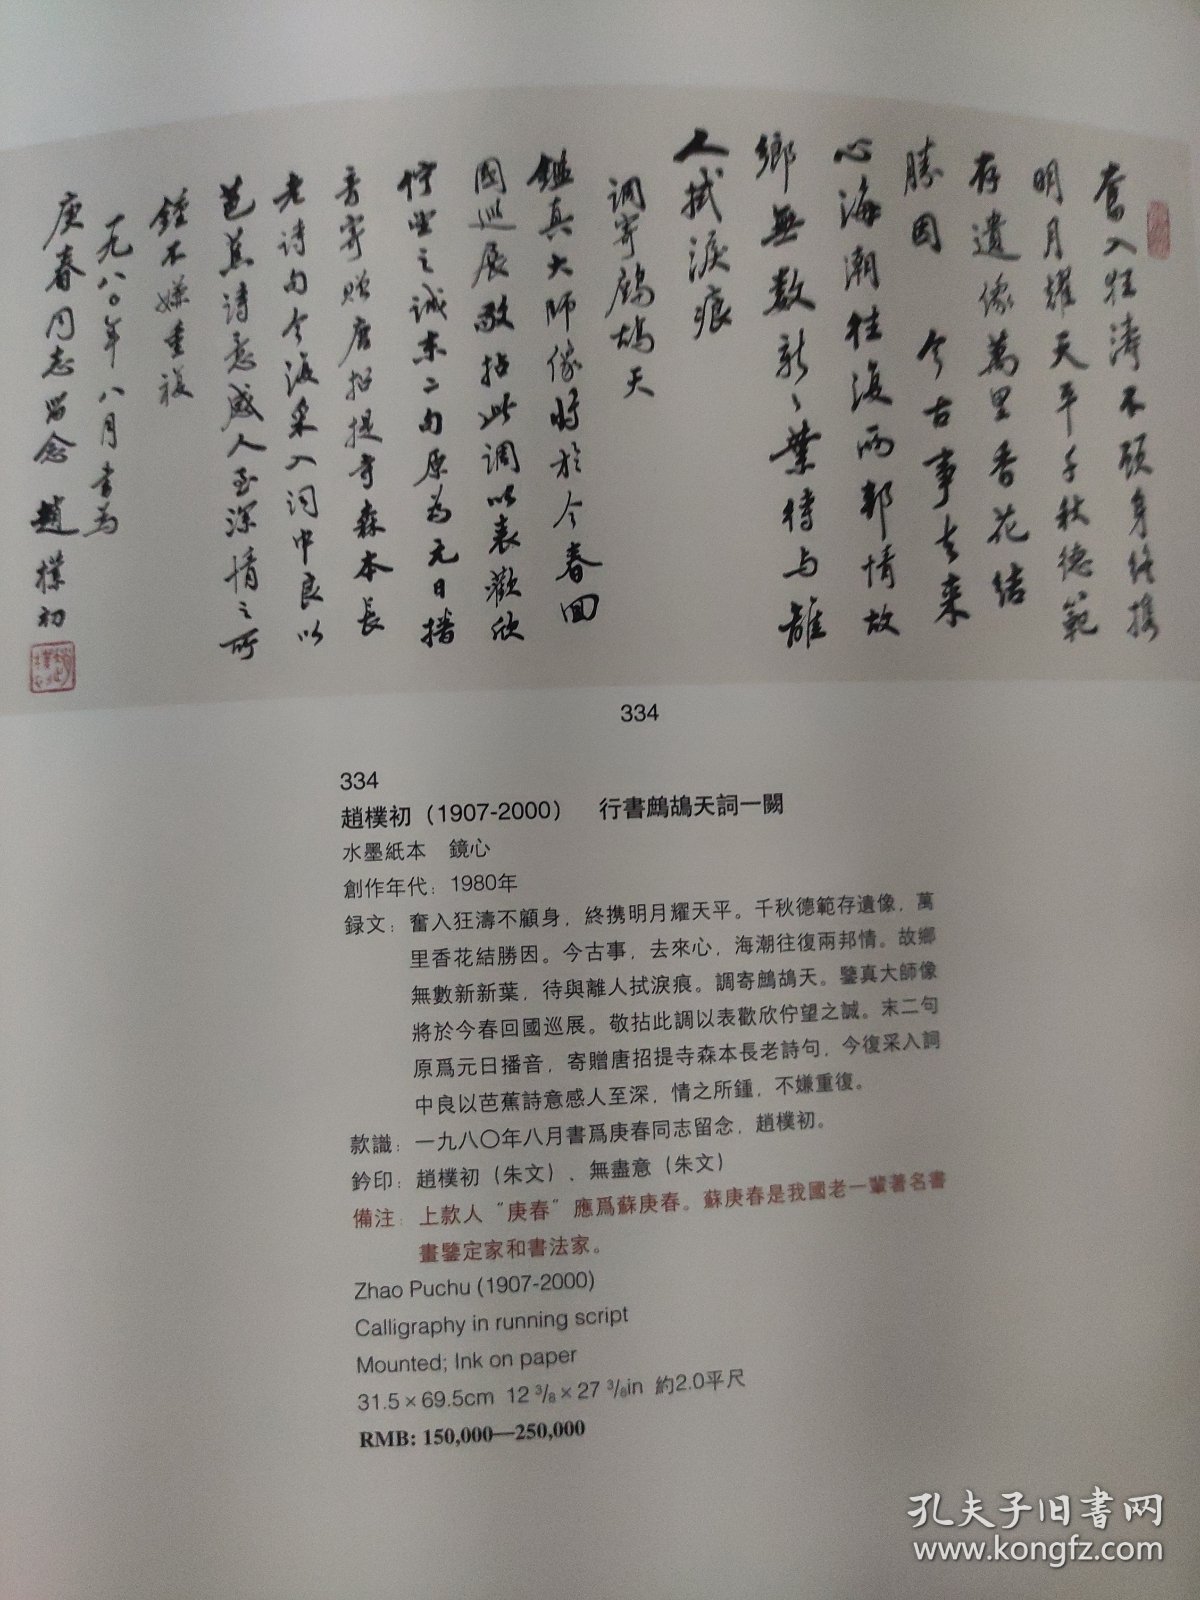 奮入狂濤不顧身終攜
明月耀天平千秋德範
存遺像萬里香花結
勝因　今古事去來
心海潮往復兩邦情故
鄉無數新〻葉待与離
人拭淚痕
調寄鷓鴣天
鑑真大師像將於今春回
國巡展敬拈此調以表歡欣
佇望之誠末二句原为元日播
音寄贈唐招提寺森本長
老诗句今復采入词中良以
芭蕉诗意感人至深情之所
鍾不嫌重複
一九八〇年八月書为
庚春同志留念　趙樸初
334
334
趙樸初（1907-2000）　行書鷓鴣天詞一闋
水墨紙本　鏡心
創作年代：1980年
録文：奮入狂濤不顧身，終携明月耀天平。千秋德範存遺像，萬
里香花結勝因。今古事，去來心，海潮往復兩邦情。故鄉
無數新新葉，待與離人拭淚痕。調寄鷓鴣天。鑒真大師像
將於今春回國巡展。敬拈此調以表歡欣佇望之誠。末二句
原爲元日播音，寄贈唐招提寺森本長老詩句，今復采入詞
中良以芭蕉詩意感人至深，情之所鍾，不嫌重復。
款識：一九八〇年八月書爲庚春同志留念，趙樸初。
鈐印：趙樸初（朱文）、無盡意（朱文）
備注：上款人“庚春”應爲蘇庚春。蘇庚春是我國老一輩著名書
畫鑒定家和書法家。
Zhao Puchu (1907-2000)
Calligraphy in running script
Mounted; Ink on paper
31.5×69.5cm  12 3/8×27 3/8in  約2.0平尺
RMB: 150,000—250,000
孔夫子旧书网
www.kongfz.com